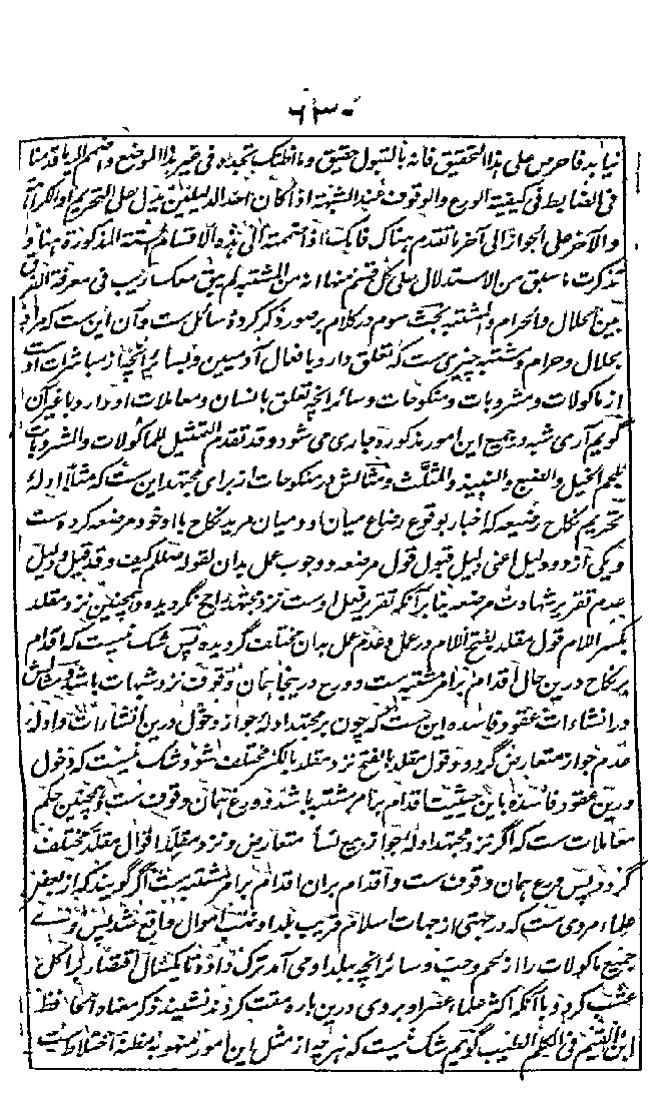 ۶۳۰
نیاید فاحرص علی هذا التحقیق فانه بالقبول حقیق وما اظنک تجده فی غیر هذا الموضع واضمم الیه ما قدمنا
فی الضابط فی کیفیة الورع والوقوف عند الشبهة اذا کان احد الدلیلین یدل علی التحریم او الکراهة
والآخر علی الجواز الی آخر ما تقدم هناک فانک اذا ضممته الی هذه الاقسام الستة المذکورة هنا و
تذکرت ما سبق من الاستدلال علی کل قسم منها انه من المشتبه لم یبق معک ریب فی معرفة الفرق
بین الحلال والحرام والمشتبه بحث سوم در کلام بر صور ذکر کرده سائل ست وآن این ست که مراد
بحلال وحرام ومشتبه چیزی ست که تعلق دارد بافعال آدمیین وبسائر آنچه از مباشرات اوست
از ماکولات ومشروبات ومنکوحات وسائر آنچه تعلق بانسان ومعاملات او دارد یا غیر آن
گویم آری شبه در جمیع این امور مذکوره جاری می شود وقد تقدم التمثیل للماکولات والمشروبات
بلحم الخیل والضبع والنبیذ والمثلث ومثالش در منکوحات از برای مجتهد این ست که مثلا ادلهٔ
تحریم نکاح رضیعه که اخبار بوقوع رضاع میان او ومیان مرید نکاح با او خود مرضعه کرده ست
ویکی از دو دلیل اعنی دلیل قبول قول مرضعه ووجوب عمل بدان لقوله صلعم کیف وقد قیل ودلیل
عدم تقریر شهادت مرضعه بنا بر آنکه تقریر فعل اوست نزد مجتهد راجح نگردیده وهمچنین نزد مقلد
بکسر اللام قول مقلد بفتح اللام در عمل وعدم عمل بدان مختلف گردیده پس شک نیست که اقدام
بر نکاح درین حال اقدام بر امر مشتبه ست وورع درینجا همان وقوف نزد شبهات باشد ومثالش
در انشاءات عقود فاسده این ست که چون بر مجتهد ادلهٔ جواز دخول درین انشاءات وادلهٔ
عدم جواز متعارض گردد وقول مقلد بالفتح نزد مقلد بالکسر مختلف شود شک نیست که دخول
درین عقود فاسده باین حیثیت اقدام بر امر مشتبه باشد وورع همان وقوف ست وهمچنین حکم
معاملات ست که اگر نزد مجتهد ادلهٔ جواز بیع نسأ متعارض ونزد مقلد اقوال مقلد مختلف
گردد پس ورع همان وقوف ست واقدام بران اقدام بر امر مشتبه ست اگر گویند که از بعض
علماء مروی ست که در جهتی از جهات اسلام قریب بلد او نهب اموال واقع شد پس وی
جمیع ماکولات را از لحم وحب وسائر آنچه ببلد او می آمد ترک داد وتا یکسال اقتصار بر اکل
عشب کرد وبا آنکه اکثر علماء عصر او بر وی درین باره مقت کردند نشنید ذکر معناه الحافظ
ابن القیم فی الکلم الطیب گویم شک نیست که هر چه از مثل این امور منهوبه مظنه اختلاط ست